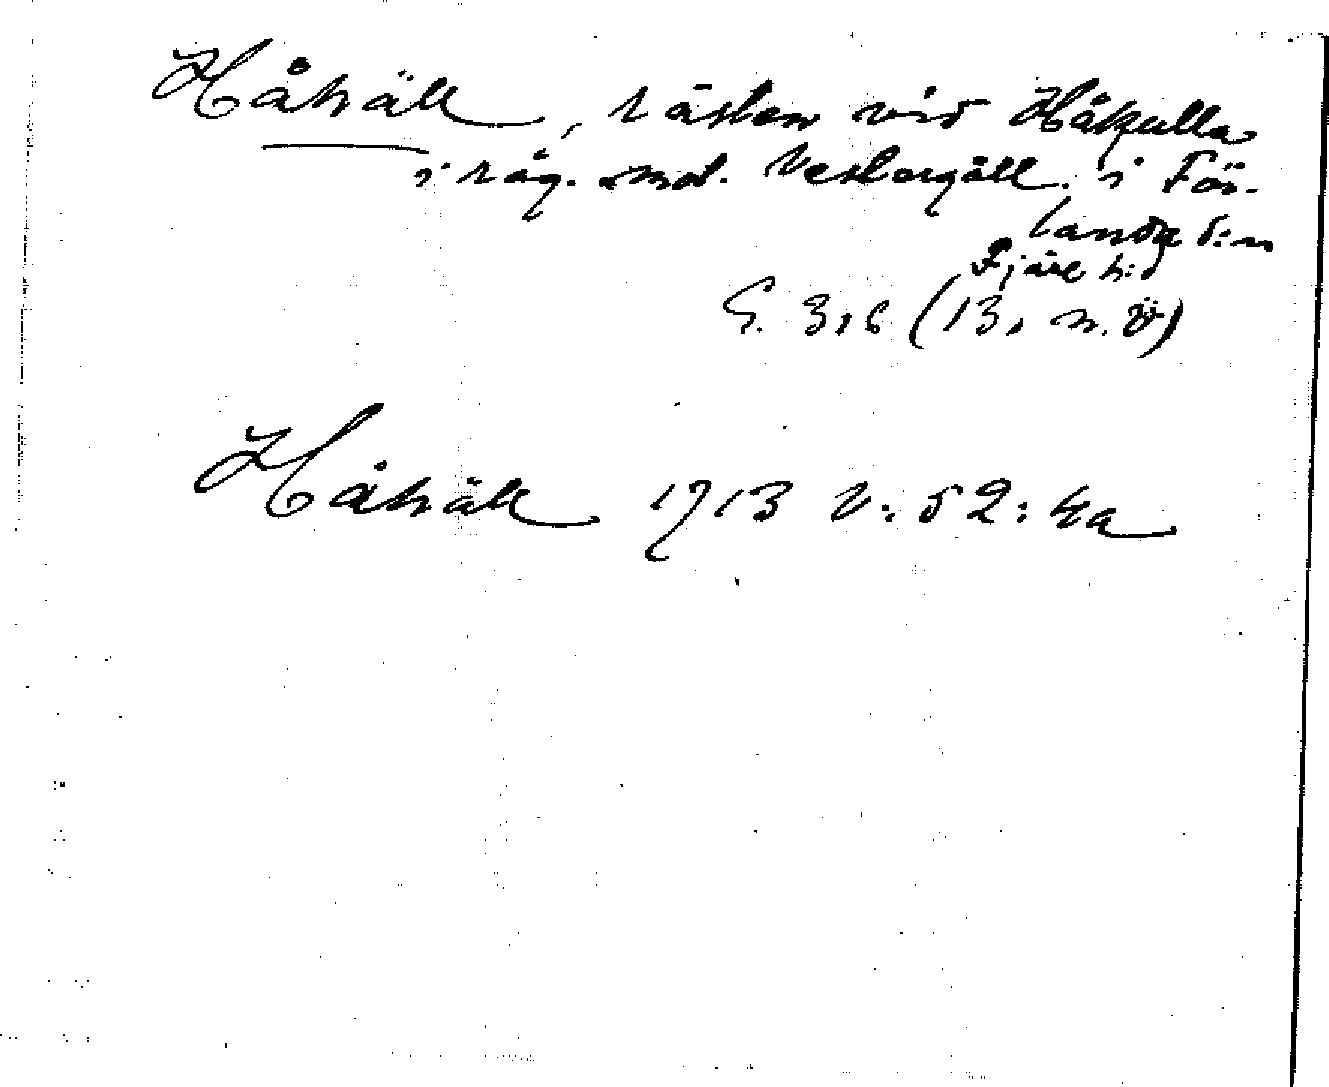 Håhäll, nästan vid Håkulla
i råg. mot. Vestergäll. i För-
landa s:n
Fjäre h:d
S. 3, 6 (13, n. ö)
Håhäll 1713 V: 52: 4a